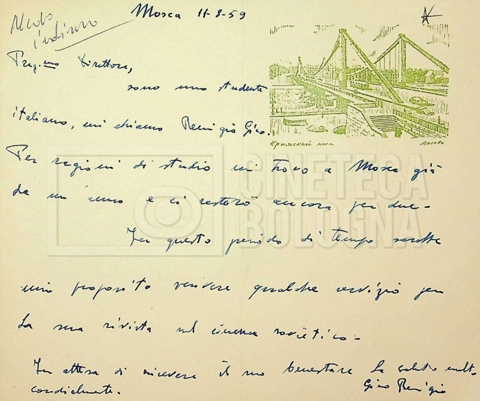 Mosca 11-8-59
Preg.mo Direttore,
sono uno studente
italiano, mi chiamo Remigio Gino.
Per ragioni di studio mi trovo a Mosca già
da un anno e ci resterò ancora per due-
In questo periodo di tempo sarebbe
mio proposito scrivere qualche servizio per
la sua rivista sul cinema sovietico-
In attesa di ricevere il suo benestare la saluto molto
cordialmente. Gino Remigio
Крымский мост
Москва
CINETECA
BOLOGNA